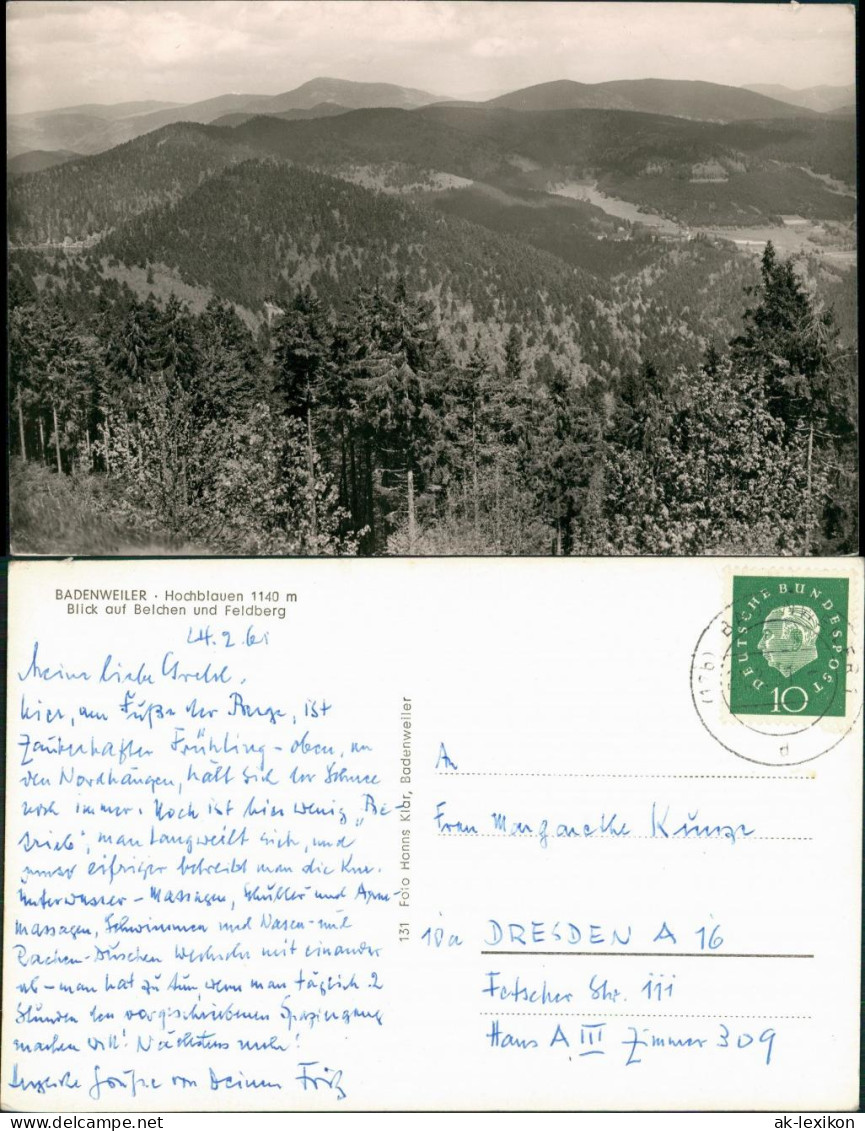 BADENWEILER · Hochblauen 1140 m
Blick auf Belchen und Feldberg
24.2.61
Meine liebe Gretel.
hier, am Fuße der Berge, ist
zauberhafter Frühling - oben, an
den Nordhängen, hält sich der Schnee
noch immer. Noch ist hier wenig „Be-
trieb", man langweilt sich, und
umso eifriger betreibt man die Kur.
Unterwasser-Massagen, Schulter und Arm-
massagen, Schwimmen und Nasen- und
Rachen-Duschen wechseln mit einander
ab - man hat zu tun, wenn man täglich 2
Stunden den vorgeschriebenen Spaziergang
machen will! Nächstens mehr!
Herzliche Grüße von Deinem Fritz
131 Foto Hanns Klär, Badenweiler
DEUTSCHE BUNDESPOST
10
(17b)
d
An
Frau Margarethe Kunze
10a DRESDEN A 16
Fetscher Str. 111
Haus A III Zimmer 309
© ansichtskarten-lexikon.de
ak-lexikon